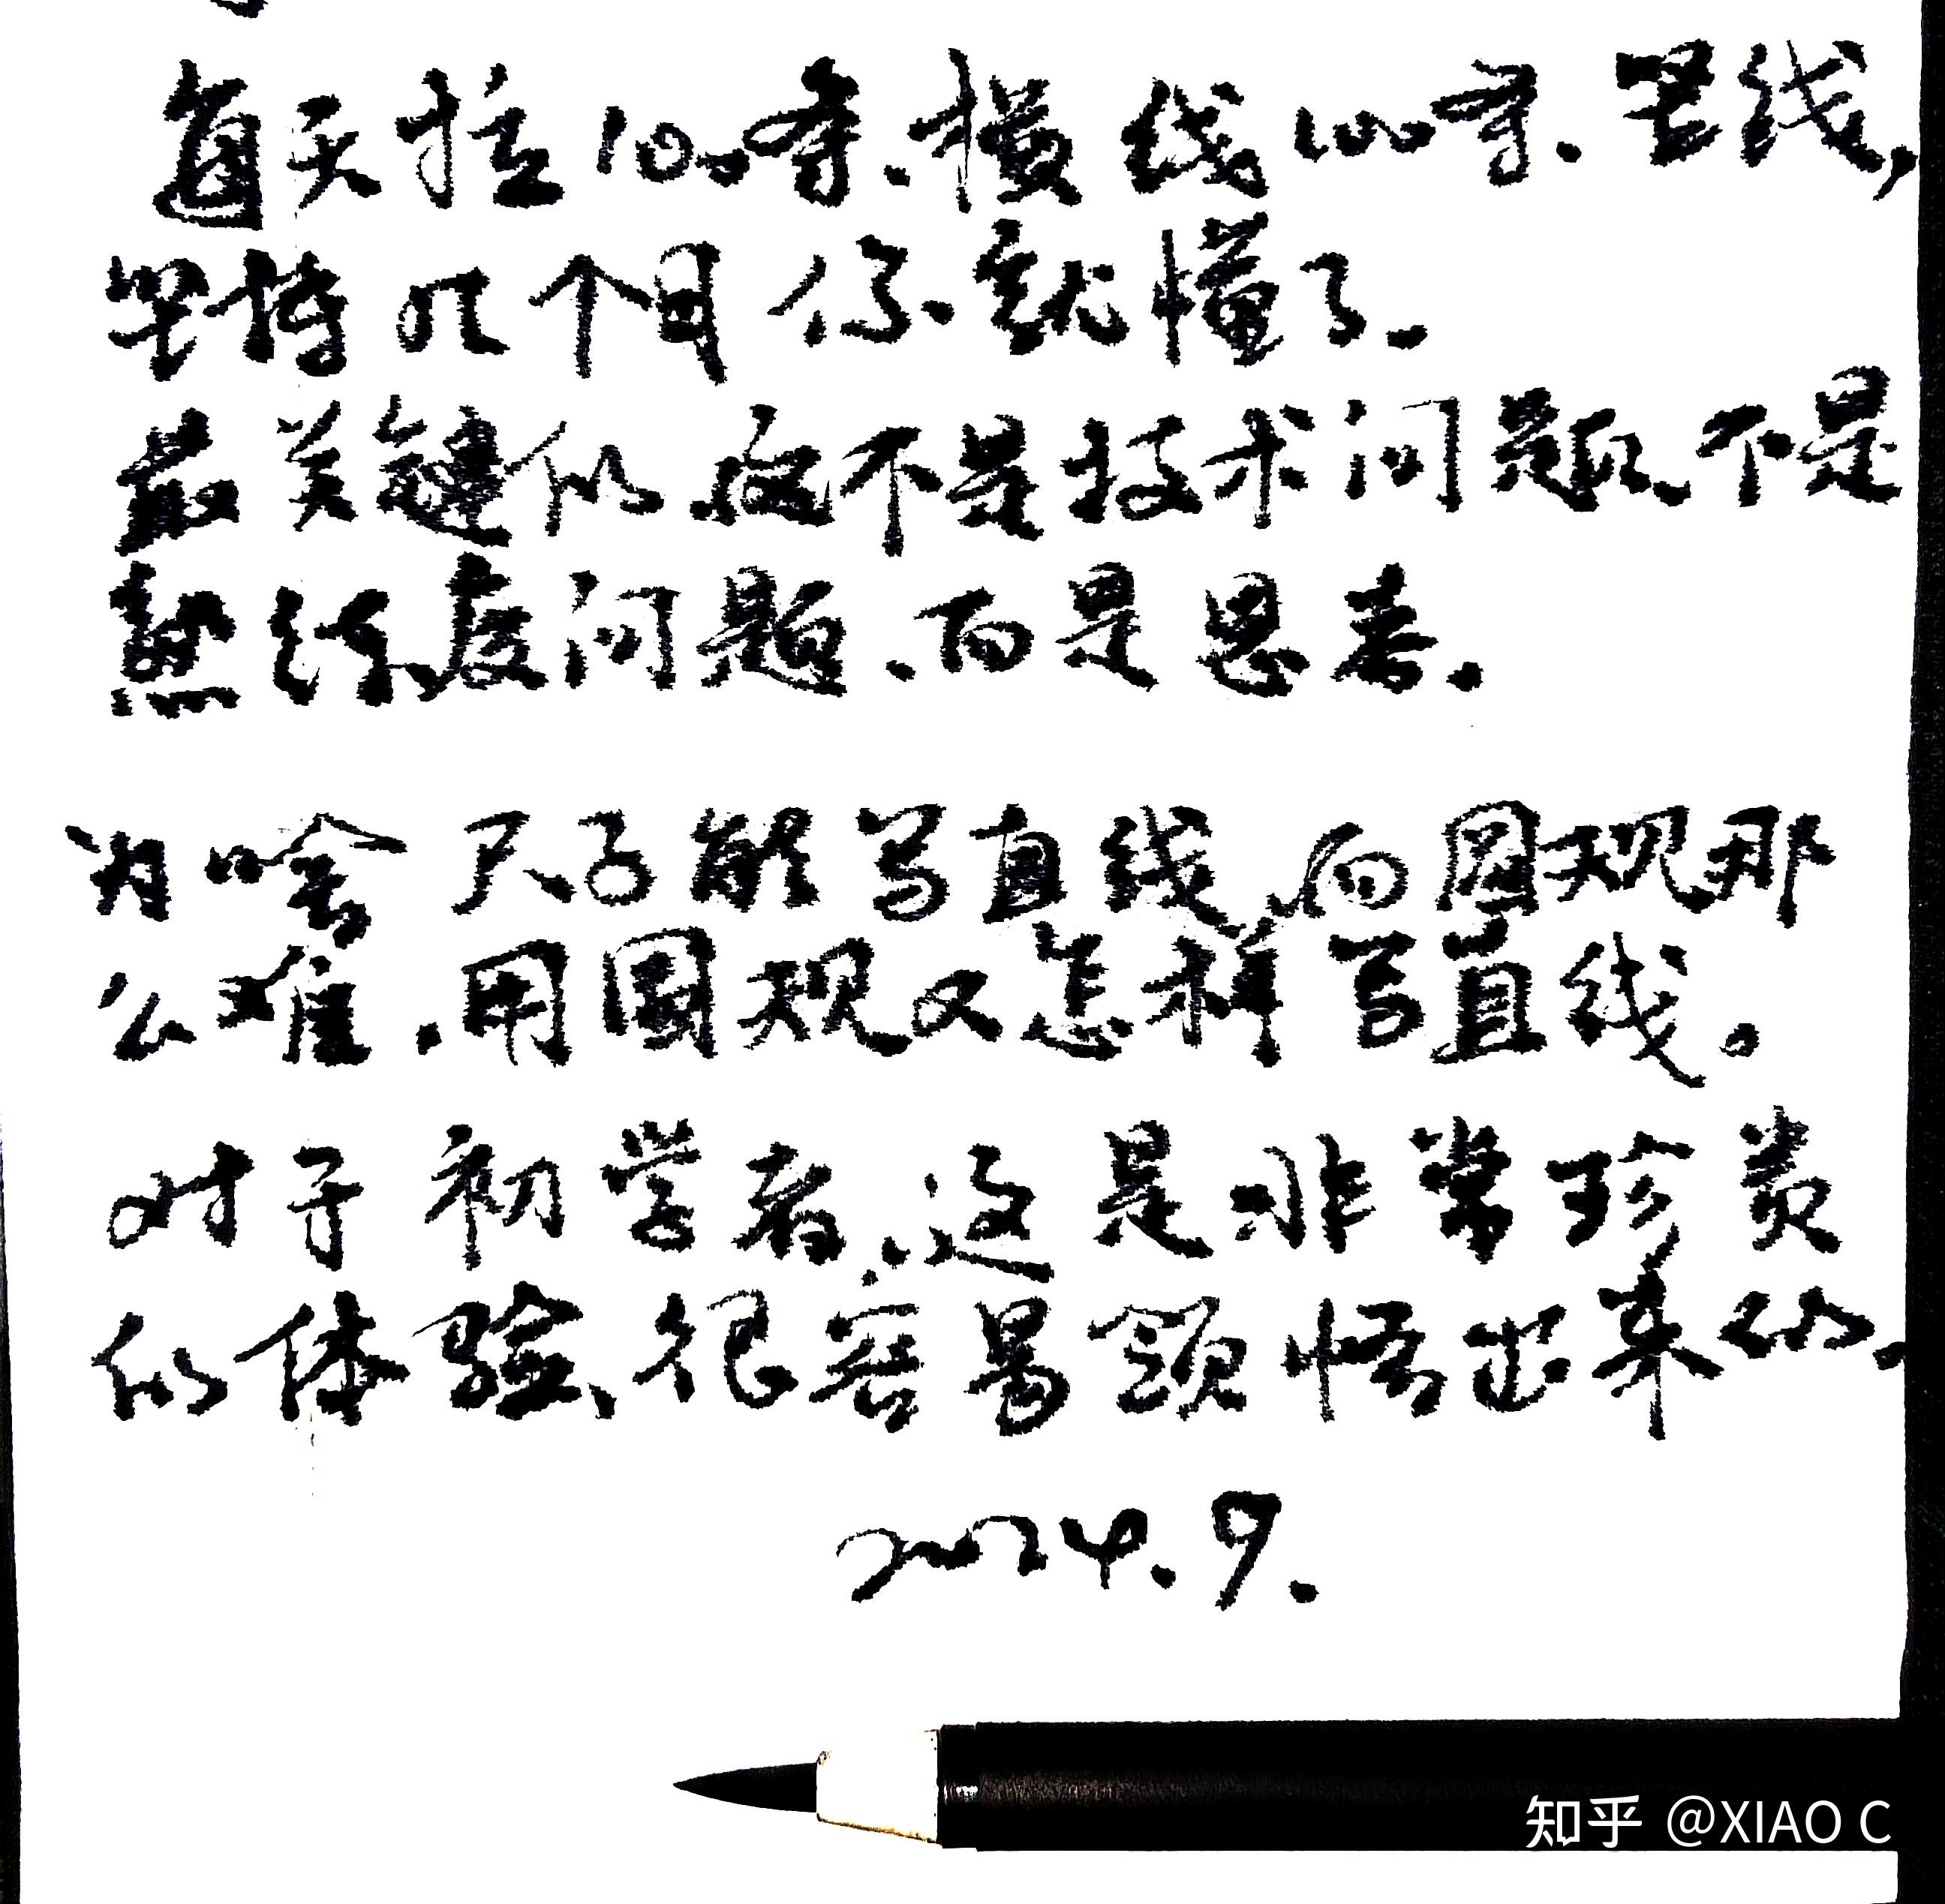 每天拉100条、横线100条、竖线,
坚持几个月你就懂了.
最关键的这不是技术问题、不是
熟练度问题、而是思考.
为啥尺子能写直线、而圆规那
么难、用圆规又怎样写直线。
对于初学者、这是非常珍贵
的体验、很容易领悟出来的.
2024.9.
知乎 @XIAO C